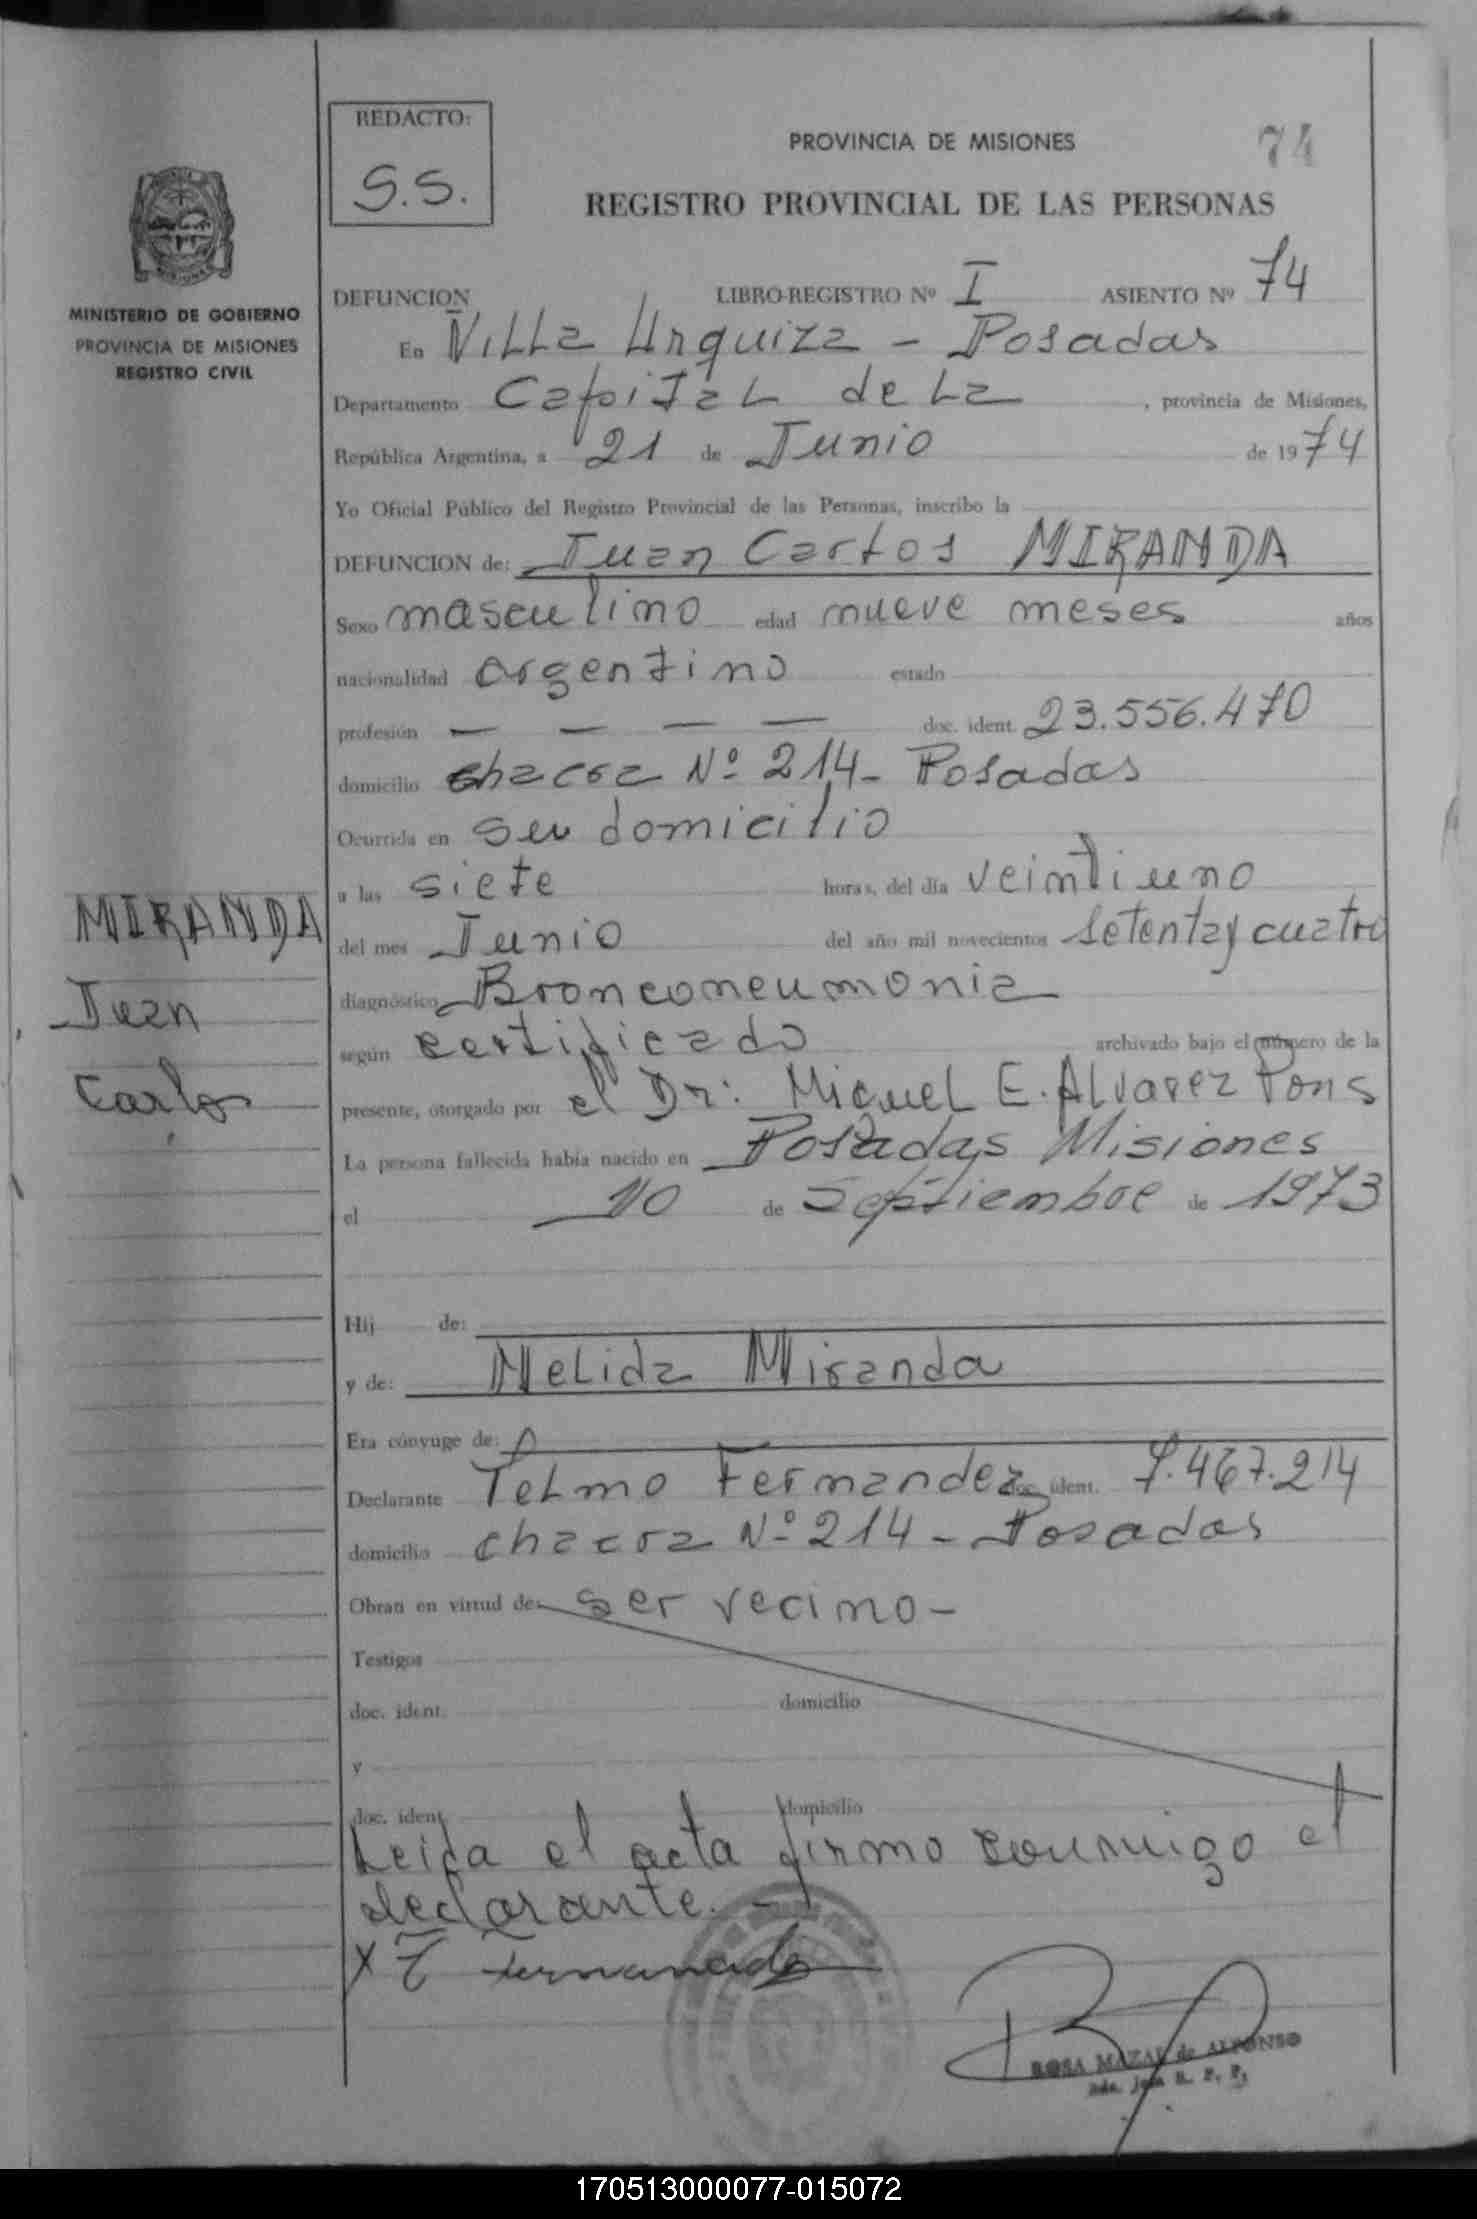 REDACTO:
S.S.
PROVINCIA DE MISIONES
74
REGISTRO PROVINCIAL DE LAS PERSONAS
MINISTERIO DE GOBIERNO
PROVINCIA DE MISIONES
REGISTRO CIVIL
DEFUNCION LIBRO-REGISTRO Nº I ASIENTO Nº 74
En Villa Urquiza - Posadas
Departamento Capital de La , provincia de Misiones,
República Argentina, a 21 de Junio de 1974
Yo Oficial Público del Registro Provincial de las Personas, inscribo la
DEFUNCION de: Juan Carlos MIRANDA
Sexo masculino edad nueve meses años
nacionalidad argentino estado
profesión — — — — doc. ident. 23.556.470
domicilio chacra Nº 214- Posadas
Ocurrida en su domicilio
a las siete horas, del día veintiuno
del mes Junio del año mil novecientos setenta y cuatro
diagnóstico Bronconeumonia
según certificado archivado bajo el número de la
presente, otorgado por el Dr: Miguel E. Alvarez Pons
La persona fallecida había nacido en Posadas Misiones
el 10 de Septiembre de 1973
MIRANDA
Juan
Carlos
Hij de:
y de: Nelida Miranda
Era cónyuge de:
Declarante Telmo Fernandez doc. ident. 7.467.214
domicilio chacra Nº 214 - Posadas
Obran en virtud de: ser vecino -
Testigos
doc. ident. domicilio
y
doc. ident. domicilio
Leida el acta firmo conmigo el
declarante. -
X T Fernandez
ROSA MAZAL de ALFONSO
170513000077-015072